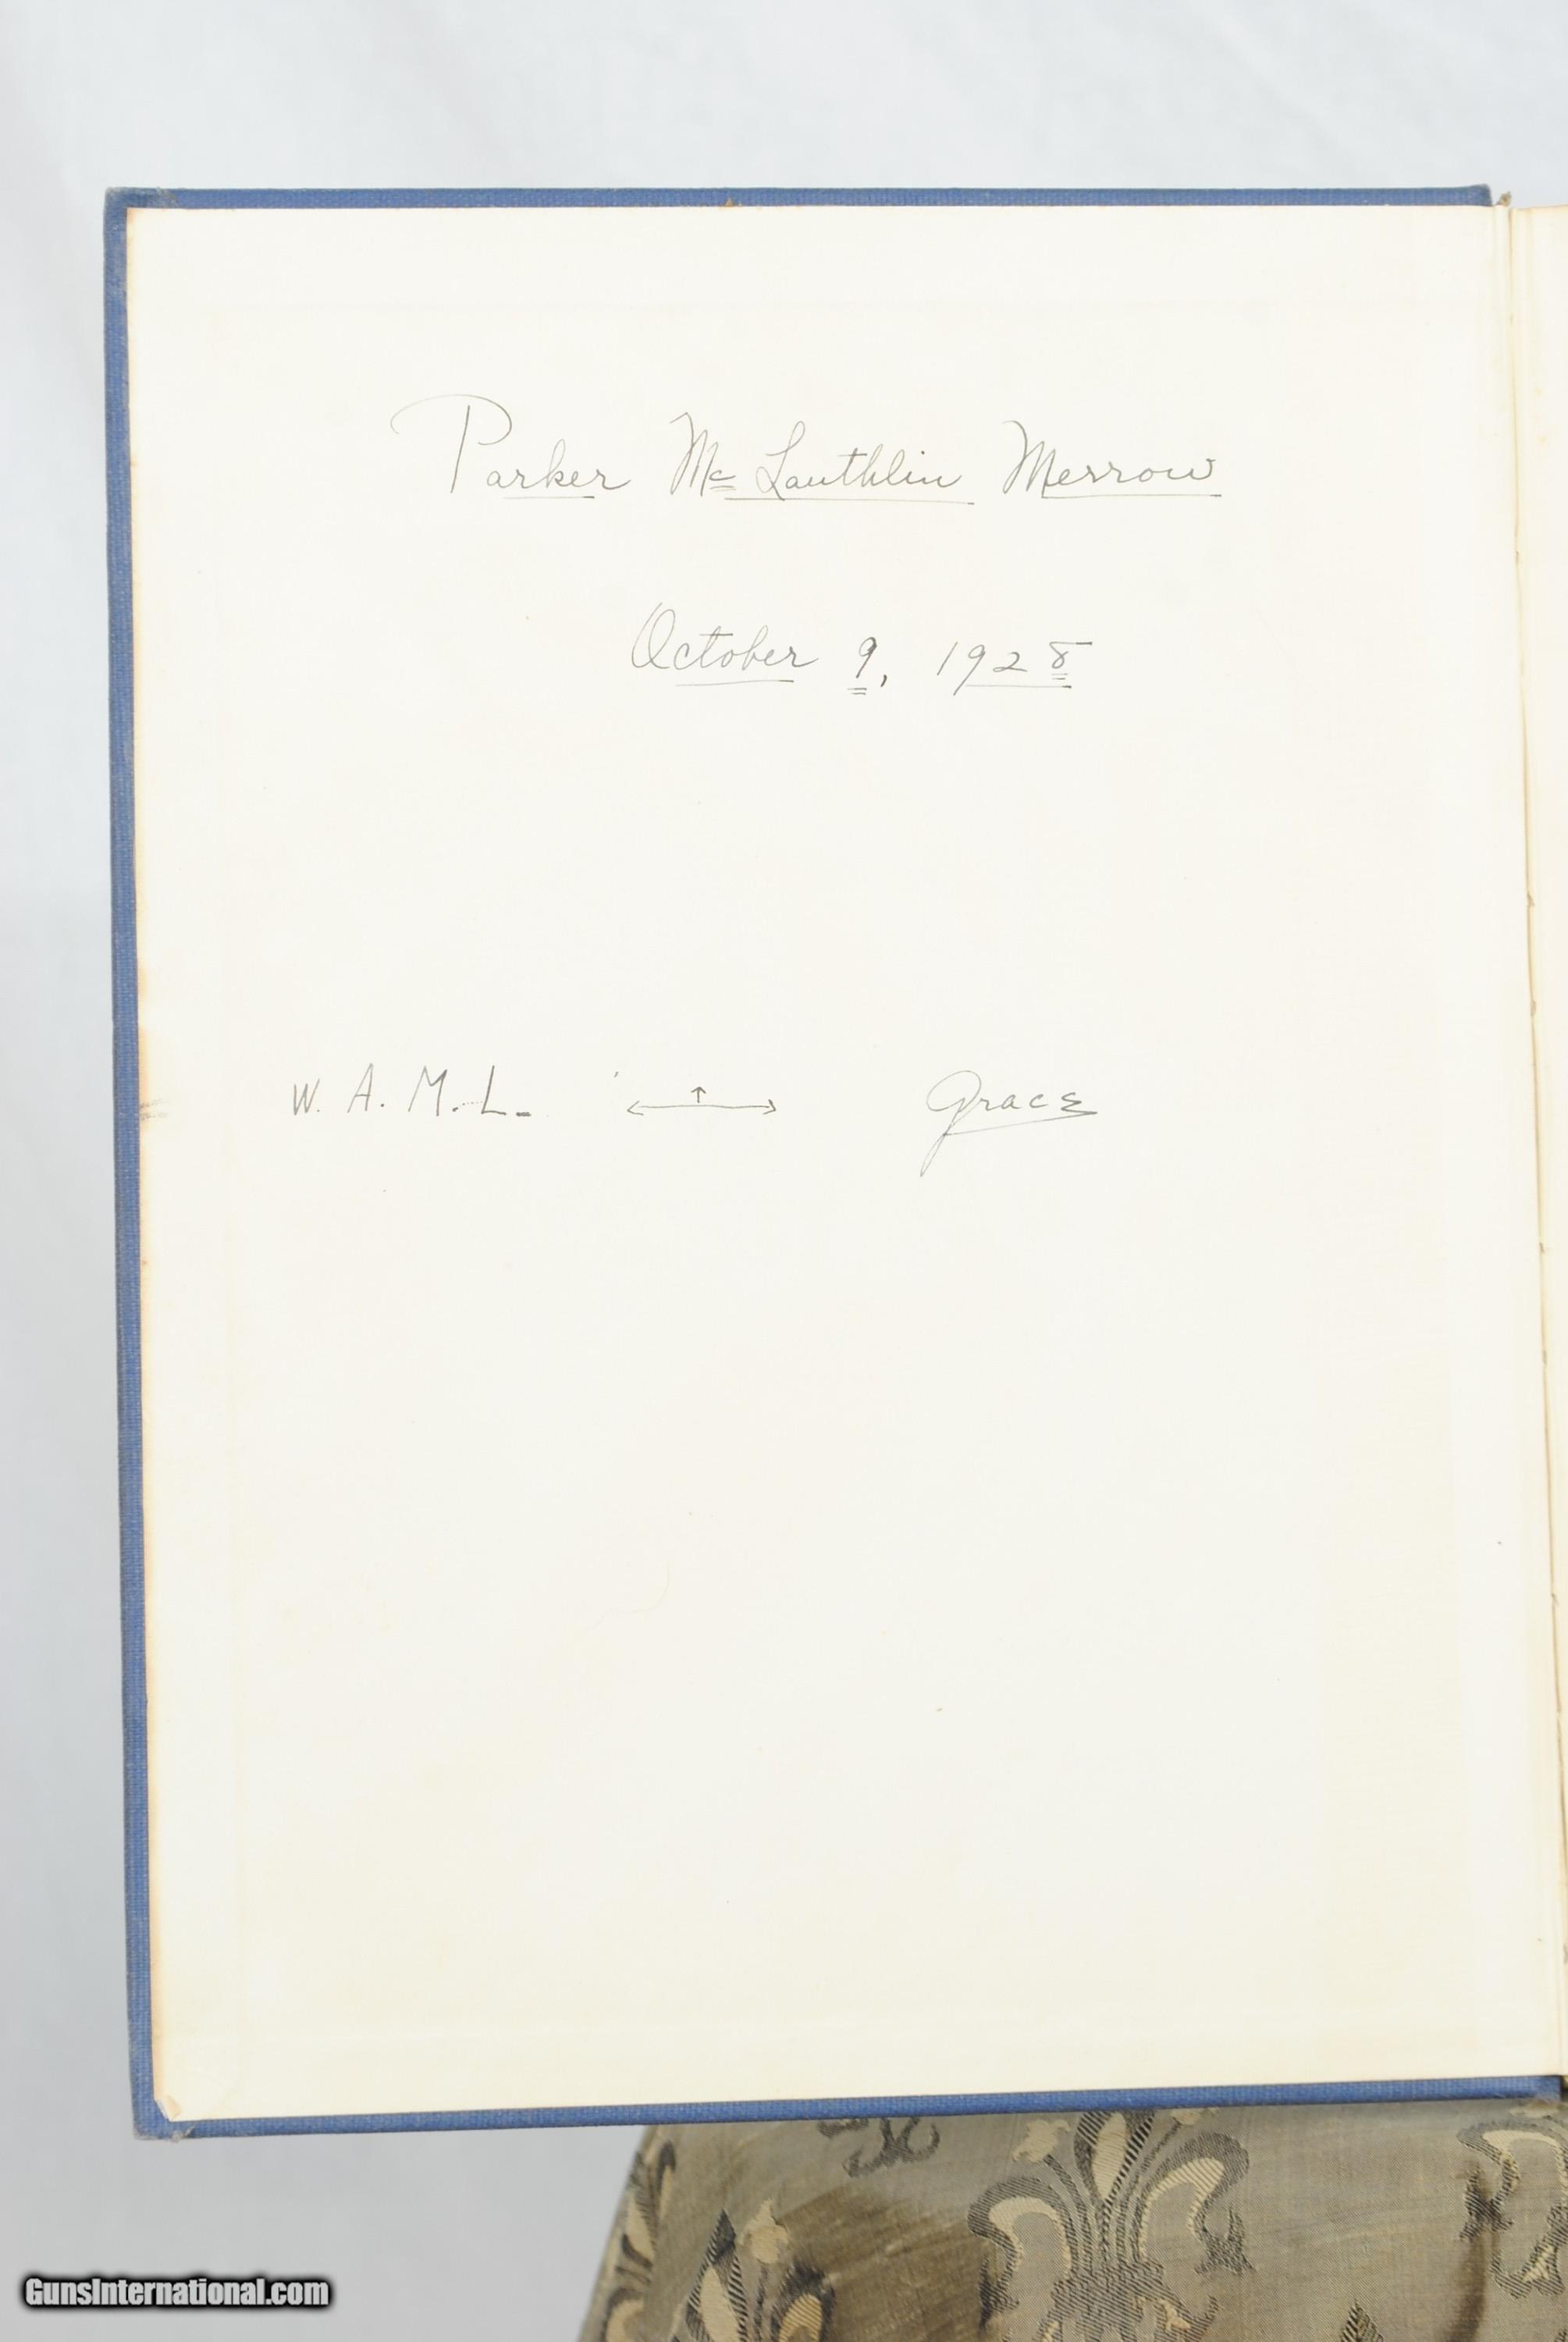 Parker McLauthlin Merrow
October 9, 1928
W. A. M. L. ←↑→ Grace
GunsInternational.com